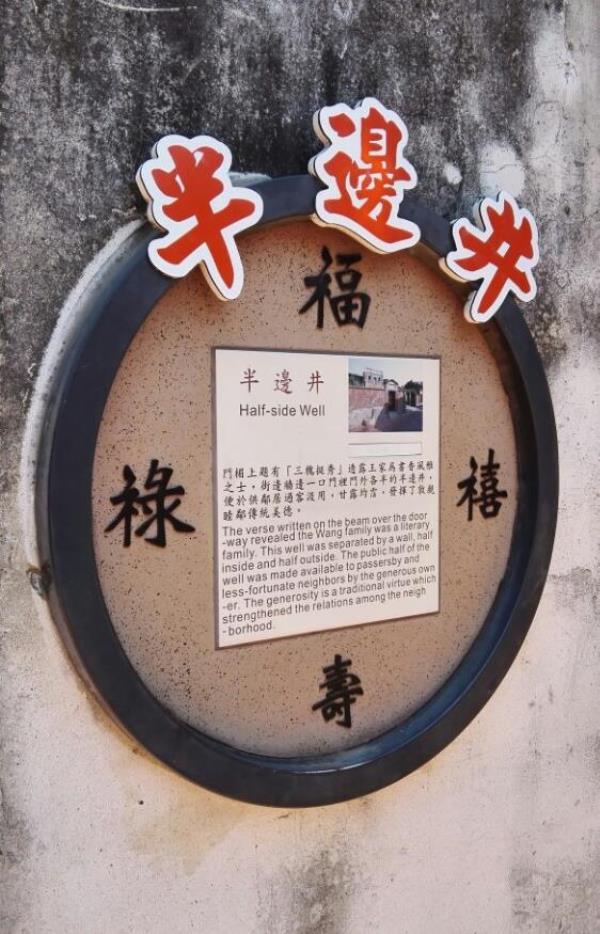 半邊井
福
祿
禧
壽
半邊井
Half-side Well
門楣上題有「三槐挺秀」透露王家為書香風雅
之士,街邊牆邊一口門裡門外各半的半邊井,
便於供鄰居過客汲用,甘露均霑,發揮了敦親
睦鄰傳統美德。
The verse written on the beam over the door
-way revealed the Wang family was a literary
family. This well was separated by a wall, half
inside and half outside. The public half of the
well was made available to passersby and
less-fortunate neighbors by the generous own
-er. The generosity is a traditional virtue which
strengthened the relations among the neigh
-borhood.